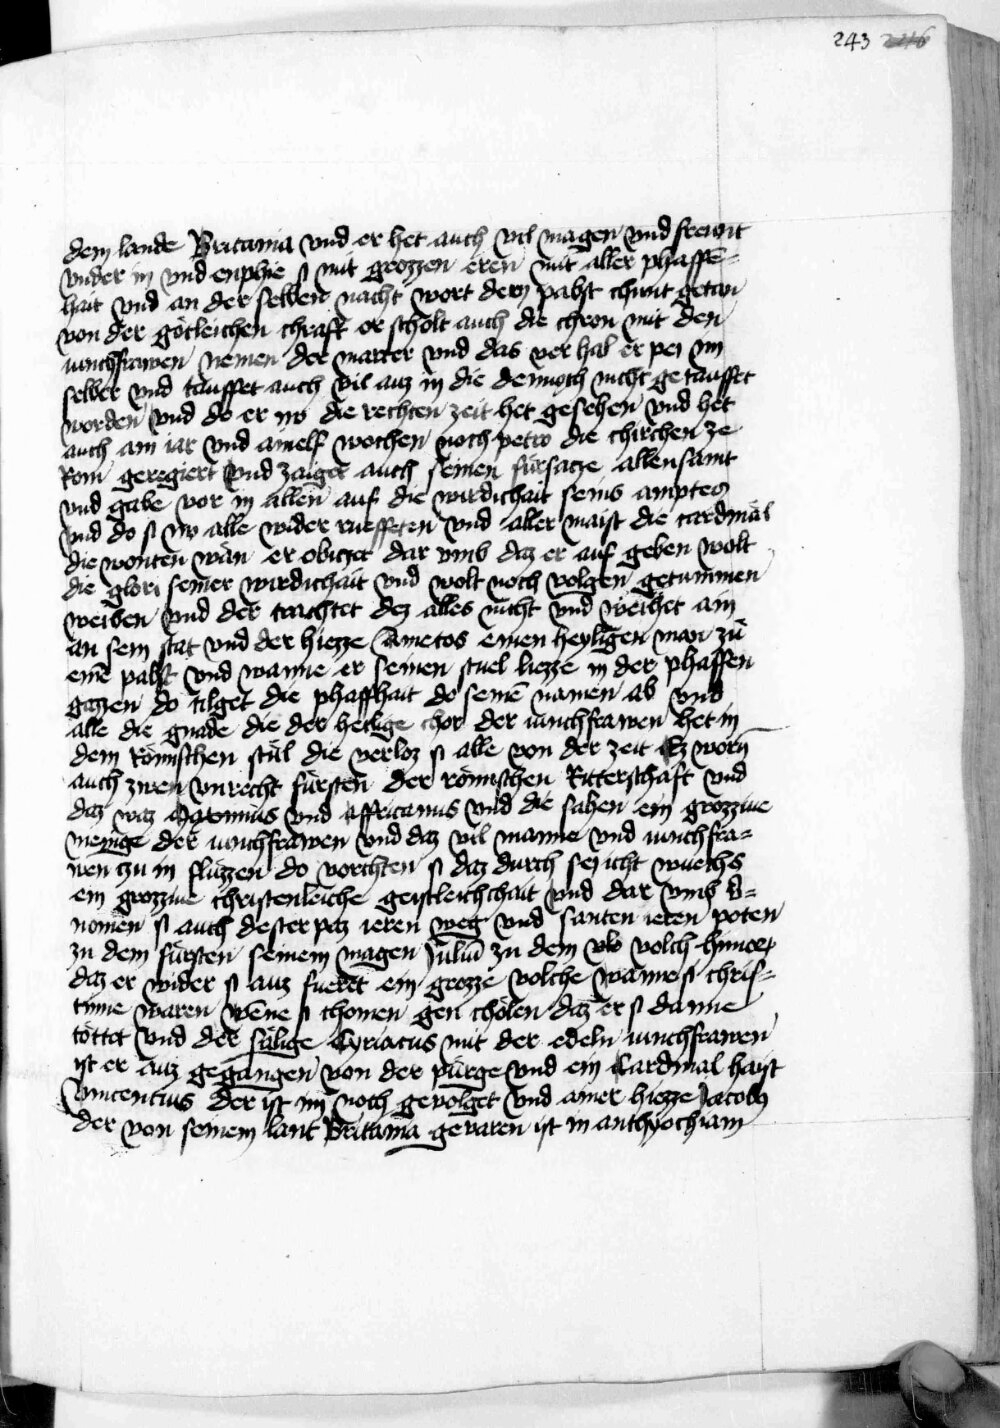 243 226
dem lande Britania vnd er het auch vil magen vnd frewnt
vnder in vnd enphie si mit grozzen eren mit aller phaffē=
hait vnd an der selben nacht wort dem pabst chunt getan
von der götleichen chraft er scholt auch die chron mit den
iunchfrawen nemen der marter vnd das ver hal er pei im
selber vnd tauffet auch vil auz in die dennoch nicht getauffet
worden vnd do er no die rechten zeit het gesehen vnd het
auch ain iar vnd ainelf wochen noch petro die chirchen ze
Rom geregiert vnd zaiget auch seinen fürsacze allensamt
vnd gabe vor in allen auf die wirdichait seins amptes
vnd do si no alle wider rueffeten vnd aller maist die cardinal
die wonten wan er obiczt dar vmb daz er auf geben wolt
die glori seiner wirdichait vnd wolt noch volgen getummen
weiben vnd der trachtet dez alles nicht vnd weihet ain
an sein stat vnd der hiezze Ametos einen heyligen man zů
einē pabst vnd wanne er seinen stuel liezze in der phaffen
gazzen do tilget die phaffhait do seinē namen ab vnd
alle die gnade die der heilige chor der iunchfrawen het in
dem Römischen stůl die verloz si alle von der zeit Ez worn
auch zwen vnrecht fürsten der römischen Ritterschaft vnd
daz waz Maximius vnd Affricanus vnd die sahen ein grozziue
menige der iunchfrawen vnd daz vil manne vnd iunchfra=
wen zu in fluzzen do vorchten si daz durch se icht wuechs
ein grozziue christenleiche geistleichchait vnd dar vmb v=
nomen si auch dester paz ieren weg vnd santen ieren poten
zu dem fürsten seinem magen Juliū zu dem volch himorz
daz er wider si auz fueret ein grozze volche wanne si chris=
tinne waren wenne si chomen gen chölen daz er si danne
töttet vnd der sälige Cyriacus mit der edeln iunchfrawen
ist er auz gegangen von der pürge vnd ein Cardinal haist
Vincencius der ist im noch gevolget vnd ainer hiezze Jacobus
der von seinem lant Britania gevaren ist in anthyochiam